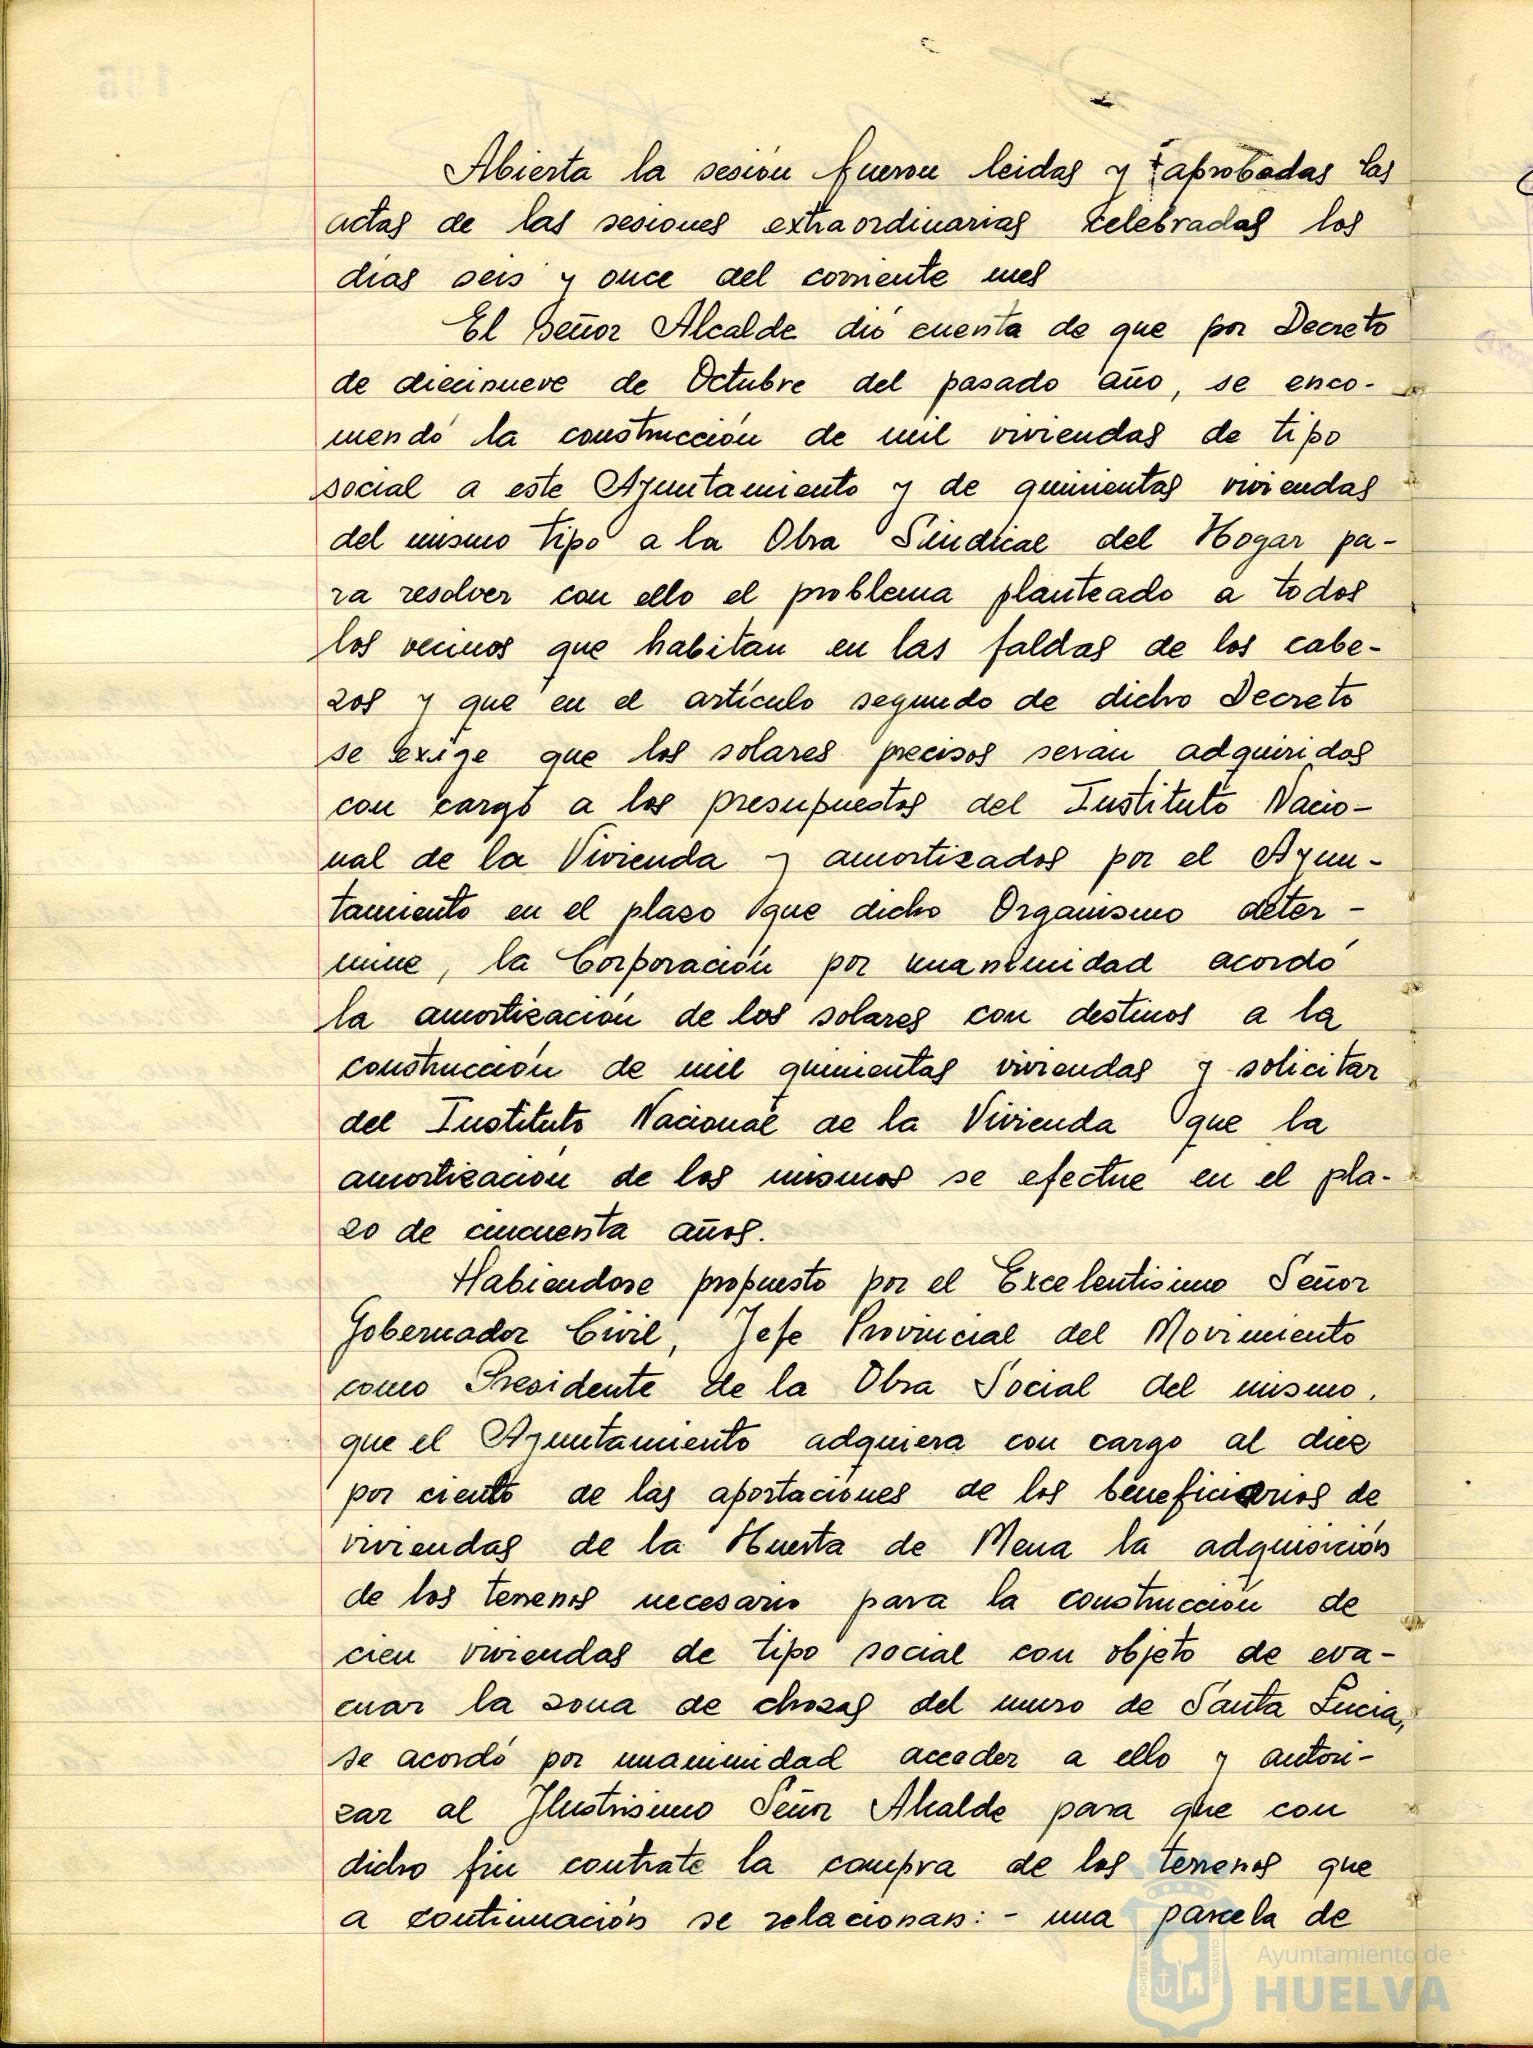 Abierta la sesión fueron leidas y aprobadas las
actas de las sesiones extraordinarias celebradas los
días seis y once del corriente mes
El Señor Alcalde dió cuenta de que por Decreto
de diecinueve de Octubre del pasado año, se enco-
mendó la construcción de mil viviendas de tipo
social a este Ayuntamiento y de quinientas viviendas
del mismo tipo a la Obra Sindical del Hogar pa-
ra resolver con ello el problema planteado a todos
los vecinos que habitan en las faldas de los cabe-
zos y que en el artículo segundo de dicho Decreto
se exige que los solares precisos seran adquiridos
con cargo a los presupuestos del Instituto Nacio-
nal de la Vivienda y amortizados por el Ayun-
tamiento en el plazo que dicho Organismo deter-
mine, la Corporación por unanimidad acordó
la amortización de los solares con destinos a la
construcción de mil quinientas viviendas y solicitar
del Instituto Nacional de la Vivienda que la
amortización de los mismos se efectue en el pla-
zo de cincuenta años.
Habiendose propuesto por el Excelentisimo Señor
Gobernador Civil, Jefe Provincial del Movimiento
como Presidente de la Obra Social del mismo,
que el Ayuntamiento adquiera con cargo al diez
por ciento de las aportaciones de los beneficiarios de
viviendas de la Huerta de Mena la adquisición
de los terrenos necesario para la construcción de
cien viviendas de tipo social con objeto de eva-
cuar la zona de chozas del muro de Santa Lucia,
se acordó por unanimidad acceder a ello y autori-
zar al Ilustrisimo Señor Alcalde para que con
dicho fin contrate la compra de los terrenos que
a continuación se relacionan: - una parcela de
Ayuntamiento de
HUELVA